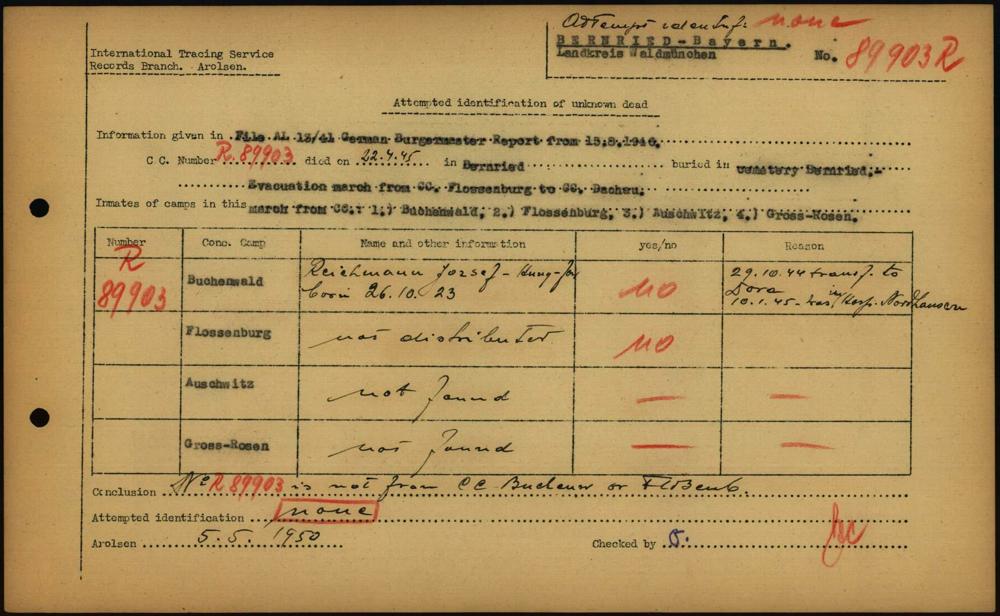 Attempt identif: none
BERNRIED-Bayern.
Landkreis Waldmünchen
No. 89903 R
International Tracing Service
Records Branch. Arolsen.
Attempted identification of unknown dead
Information given in File AL 13/41 German Burgermaster Report from 15.8.1946.
C.C. Number R. 89903 died on 22.4.45 in Bernried buried in cemetery Bernried,-
Evacuation march from CC. Flossenburg to CC. Dachau.
Inmates of camps in this march from CC.: 1.) Buchenwald, 2.) Flossenburg, 3.) Auschwitz, 4.) Gross-Rosen.
Number Conc. Camp Name and other information yes/no Reason
R 89903 Buchenwald Reichmann Jozsef - Hung-Jew born 26.10.23 no 29.10.44 transf. to Dora 10.1.45 - was in Nordhausen
Flossenburg not distributed no
Auschwitz not found — —
Gross-Rosen not found — —
Conclusion No R 89903 is not from CC Buchenw or Floßenb.
Attempted identification none
Arolsen 5.5. 1950 Checked by